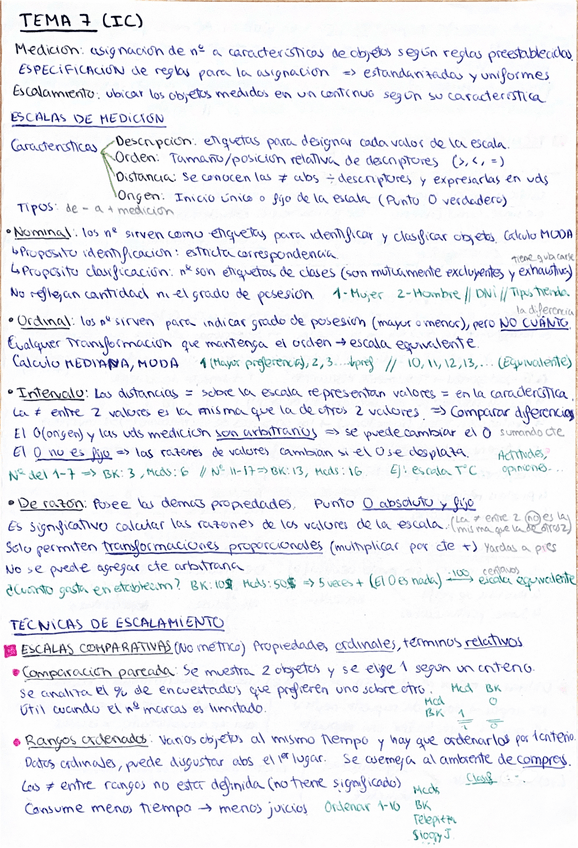 TEMA 7 (IC)
Medición: asignación de nº a características de objetos según reglas preestablecidas.
ESPECIFICACIÓN de reglas para la asignación => estandarizadas y uniformes
Escalamiento: ubicar los objetos medidos en un continuo según su característica
ESCALAS DE MEDICIÓN
Características
Descripción: etiquetas para designar cada valor de la escala.
Orden: Tamaño/posición relativa de descriptores (>, <, =)
Distancia: Se conocen las ≠ abs ÷ descriptores y expresarlas en uds
Origen: Inicio único o fijo de la escala (Punto 0 verdadero)
Tipos: de - a + medición
• Nominal: los nº sirven como etiquetas para identificar y clasificar objetos. Calculo MODA
↳Proposito identificación: estricta correspondencia.
↳Proposito clasificación: nº son etiquetas de clases (son mutuamente excluyentes y exhaustivas)
No reflejan cantidad ni el grado de posesión 1-Mujer 2-Hombre // DNI // Tipos Tienda
• Ordinal: los nº sirven para indicar grado de posesión (mayor o menor), pero NO CUÁNTO.
la diferencia
Cualquier transformación que mantenga el orden → escala equivalente.
Calculo MEDIANA, MODA 1 (Mayor preferencia), 2, 3... // 10, 11, 12, 13, ... (Equivalente)
• Intervalo: Las distancias = sobre la escala representan valores = en la característica.
La ≠ entre 2 valores es la misma que la de otros 2 valores. => Comparar diferencias
El 0 (origen) y las uds medición son arbitrarios => se puede cambiar el 0 sumando cte
El 0 no es fijo => las razones de valores cambian si el 0 se desplaza.
Actitudes, opinione...
Nº del 1-7 => BK: 3, Mcds: 6 // Nº 11-17 => BK: 13, Mcds: 16 Ej: escala TªC
• De razón: Posee las demás propiedades. Punto 0 absoluto y fijo
Es significativo calcular las razones de los valores de la escala. (La ≠ entre 2 no es la misma que la de otros 2)
Solo permiten transformaciones proporcionales (multiplicar por cte +) Yardas a pies
No se puede agregar cte arbitraria
¿Cuánto gasta en establecim? BK: 10$ Mcds: 50$ => 5 veces + (El 0 es nada) ·100 centavos → escala equivalente
TÉCNICAS DE ESCALAMIENTO
ESCALAS COMPARATIVAS (No métrico) Propiedades ordinales, términos relativos
• Comparación pareada: Se muestra 2 objetos y se elige 1 según un criterio.
Se analiza el % de encuestados que prefieren uno sobre otro.
Útil cuando el nº marcas es limitado.
Mcd BK
Mcd 0
BK 1
• Rangos ordenados: Varios objetos al mismo tiempo y hay que ordenarlos por 1 criterio.
Datos ordinales, puede disgustar abs el 1er lugar. Se asemeja al ambiente de compras.
Las ≠ entre rangos no está definida (no tiene significado)
Consume menos tiempo → menos juicios Ordenar 1-10
Mcds
BK
Telepizza